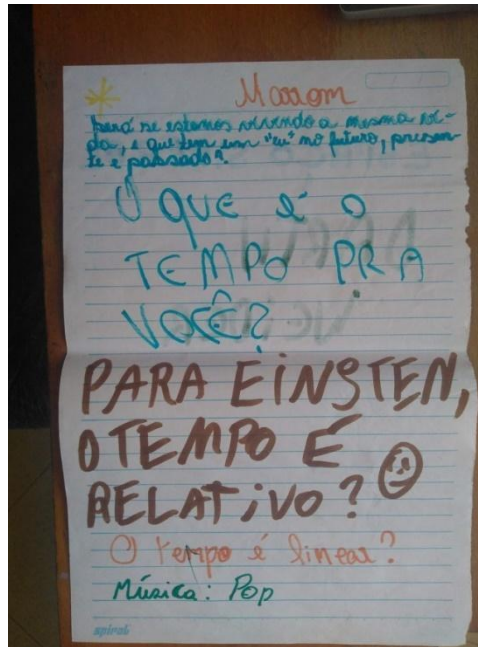 Marrom
Será se estamos vivendo a mesma vi-
da, e que tem um "eu" no futuro, presen-
te e passado?
O QUE é O
TEMPO PRA
VOCÊ?
PARA EINSTEN,
O TEMPO É
RELATIVO?
O tempo é linear?
Música: Pop
spiral